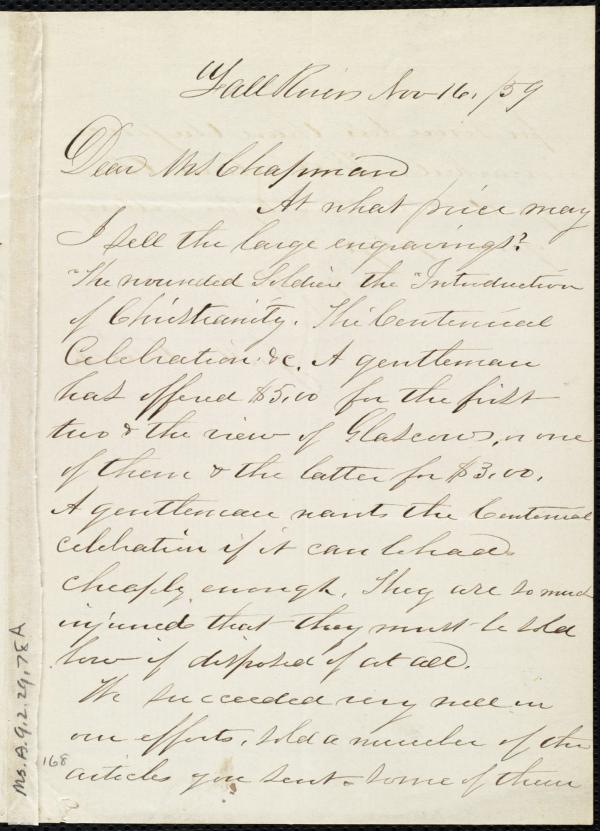 Fall River Nov 16, /59
Dear Mrs Chapman
At what price may
I sell the large engravings?
The wounded Soldier the Introduction
of Christianity. The Centennial
Celebration &c. A gentleman
has offered $5,00 for the first
two & the view of Glascow, or one
of them & the latter for $3,00.
A gentleman wants the Centennial
celebration if it can be had
cheaply enough. They are so much
injured that they must be sold
low if disposed of at all.
We succeeded very well in
our efforts, sold a number of the
articles you sent. Some of them
Ms. A.9.2.29,78A
168